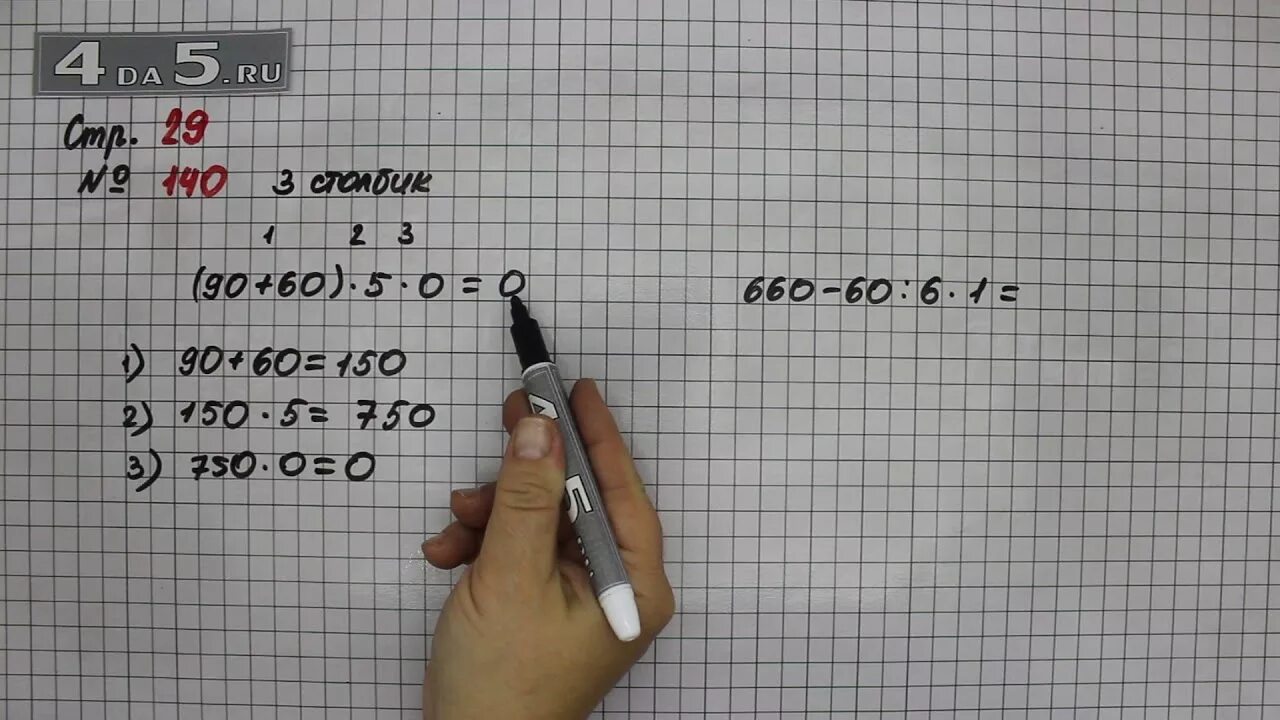 4DA5.RU
Стр. 29
№ 140 3 столбик
1 2 3
(90+60)·5·0=0
1) 90+60=150
2) 150·5=750
3) 750·0=0
660-60:6·1=
4
5